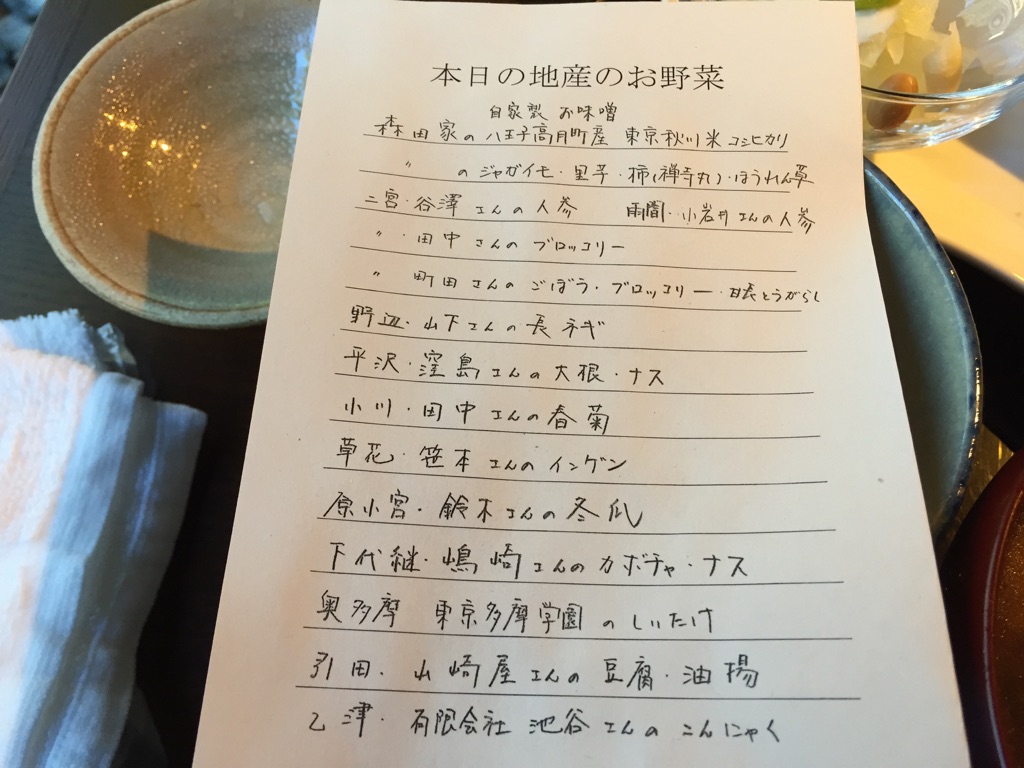 本日の地産のお野菜
自家製 お味噌
森田家の八王子高月町産 東京秋川米コシヒカリ
〃 のジャガイモ・里芋・柿(禅寺丸)・ほうれん草
二宮・谷澤さんの人参 雨間・小岩井さんの人参
〃・田中さんのブロッコリー
〃 町田さんのごぼう・ブロッコリー・甘長とうがらし
野辺・山下さんの長ネギ
平沢・窪島さんの大根・ナス
小川・田中さんの春菊
草花・笹本さんのインゲン
原小宮・鈴木さんの冬瓜
下代継・嶋崎さんのカボチャ・ナス
奥多摩 東京多摩学園のしいたけ
引田・山崎屋さんの豆腐・油揚
乙津・有限会社 池谷さんのこんにゃく